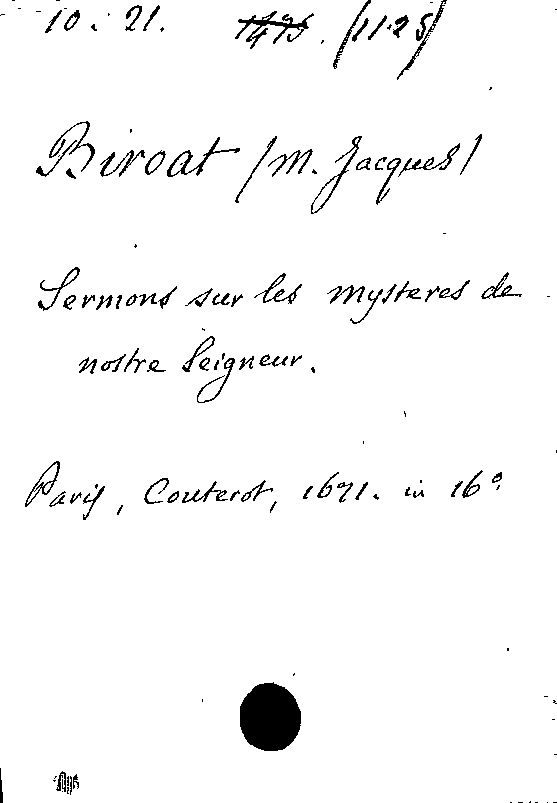 10. 21. (1125)
Biroat (M. Jacques)
Sermons sur les mysteres de
nostre Seigneur.
Paris, Couterot, 1671. in 16°